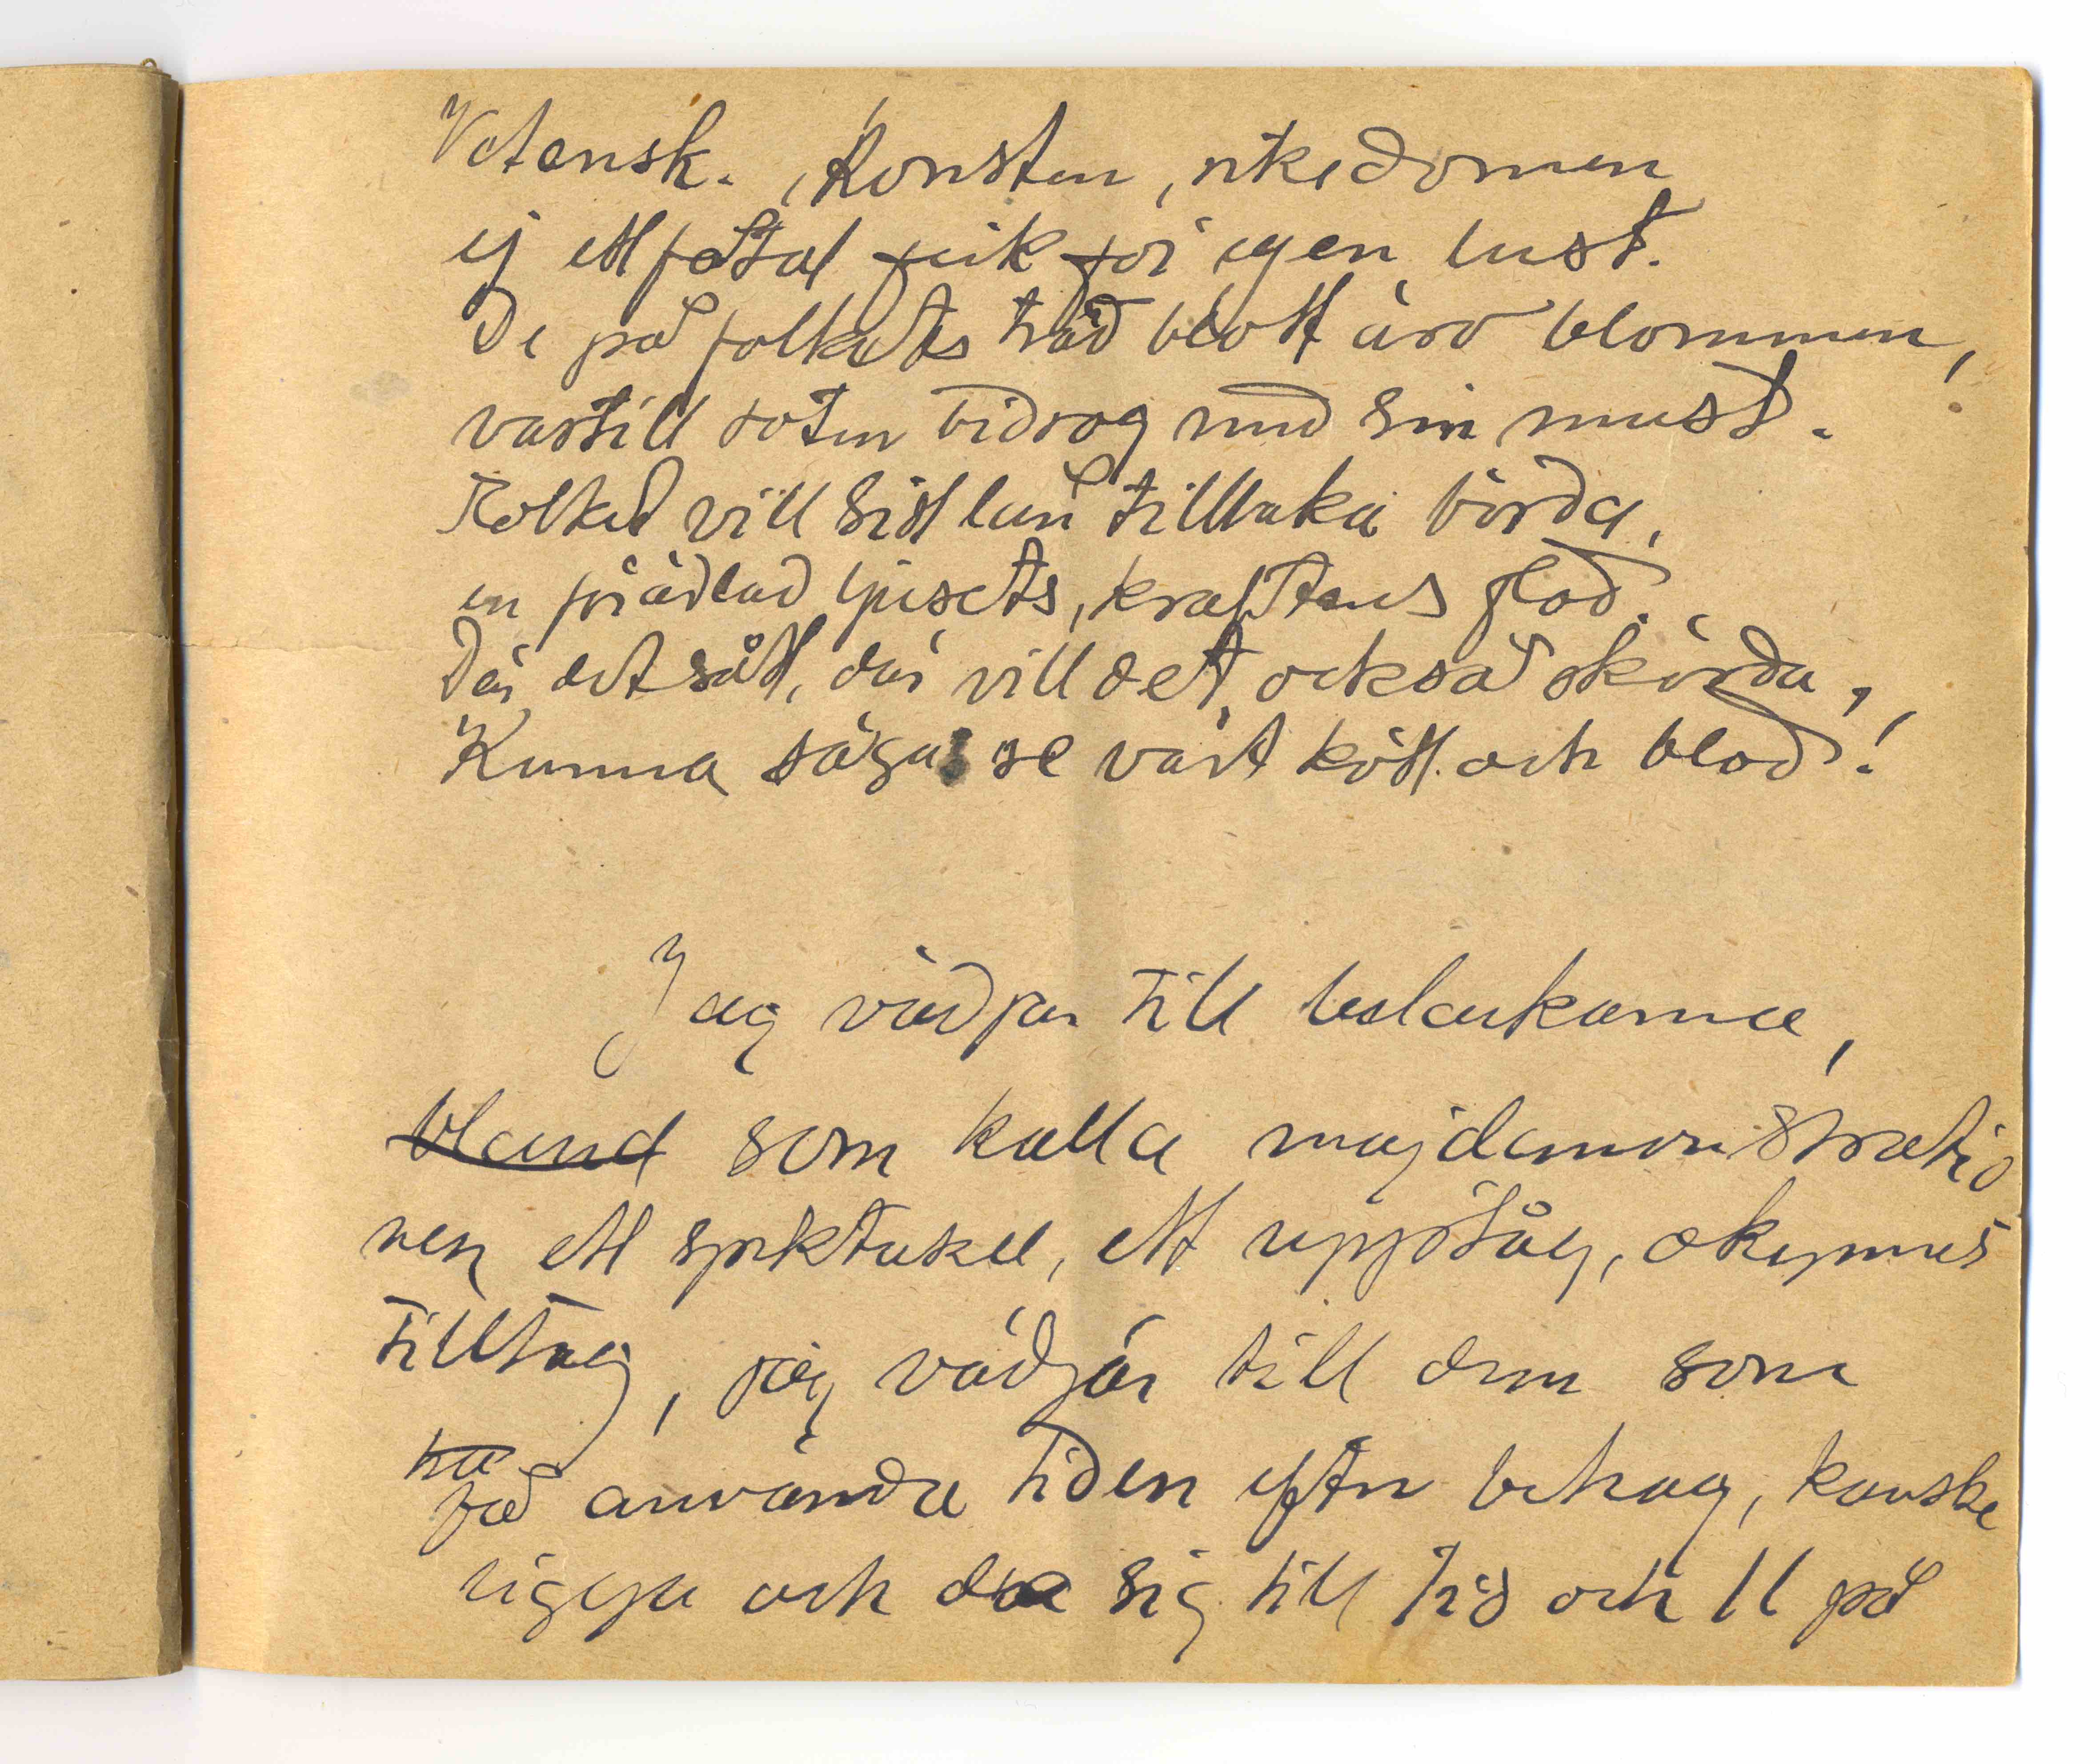 Vetensk., Konsten, rikedomen
ej ett fåtal fick för egen lust.
De på folkets träd blott äro blommen,
vartill roten bidrog med sin must.
Folket vill sitt lån tillbaka börda,
en förädlad ljusets, kraftens flod.
Där det sått, där vill det också skörda,
Kunna säga: se vårt kött och blod!
Jag vädjar till belackarna,
bland som kalla majdemonstratio
nen ett spektakel, ett upptåg, okynnes
tilltag, jag vädjar till dem som
ha
få använda tiden efter behag, kanske
ligga och dra sig till kl 10 och 11 på